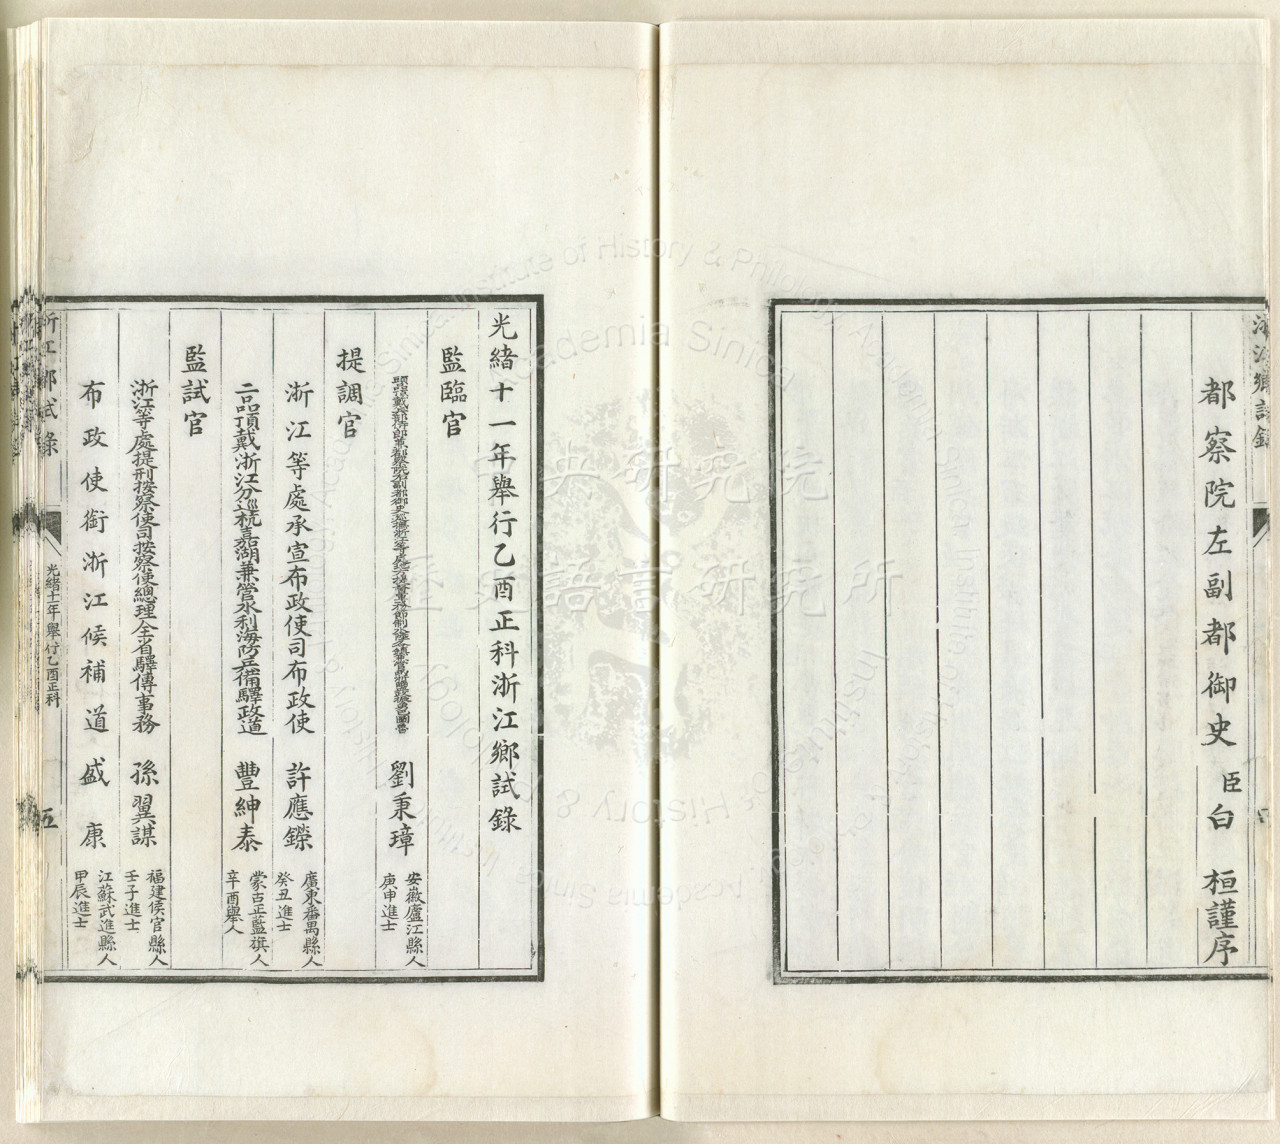 浙江鄉試錄
都察院左副都御史臣白桓謹序
光緒十一年舉行乙酉正科浙江鄉試錄
監臨官
劉秉璋 安徽廬江縣人 庚申進士
提調官
浙江等處承宣布政使司布政使 許應鑅 廣東番禺縣人 癸丑進士
二品頂戴浙江分巡杭嘉湖兼管水利海防兵備驛政道 豐紳泰 蒙古正藍旗人 辛酉舉人
監試官
浙江等處提刑按察使司按察使總理全省驛傳事務 孫翼謀 福建侯官縣人 壬子進士
布政使銜浙江候補道 盛康 江蘇武進縣人 甲辰進士
浙江鄉試錄 光緒十一年舉行乙酉正科 五
中央研究院
歷史語言研究所
Institute of History & Philology, Academia Sinica